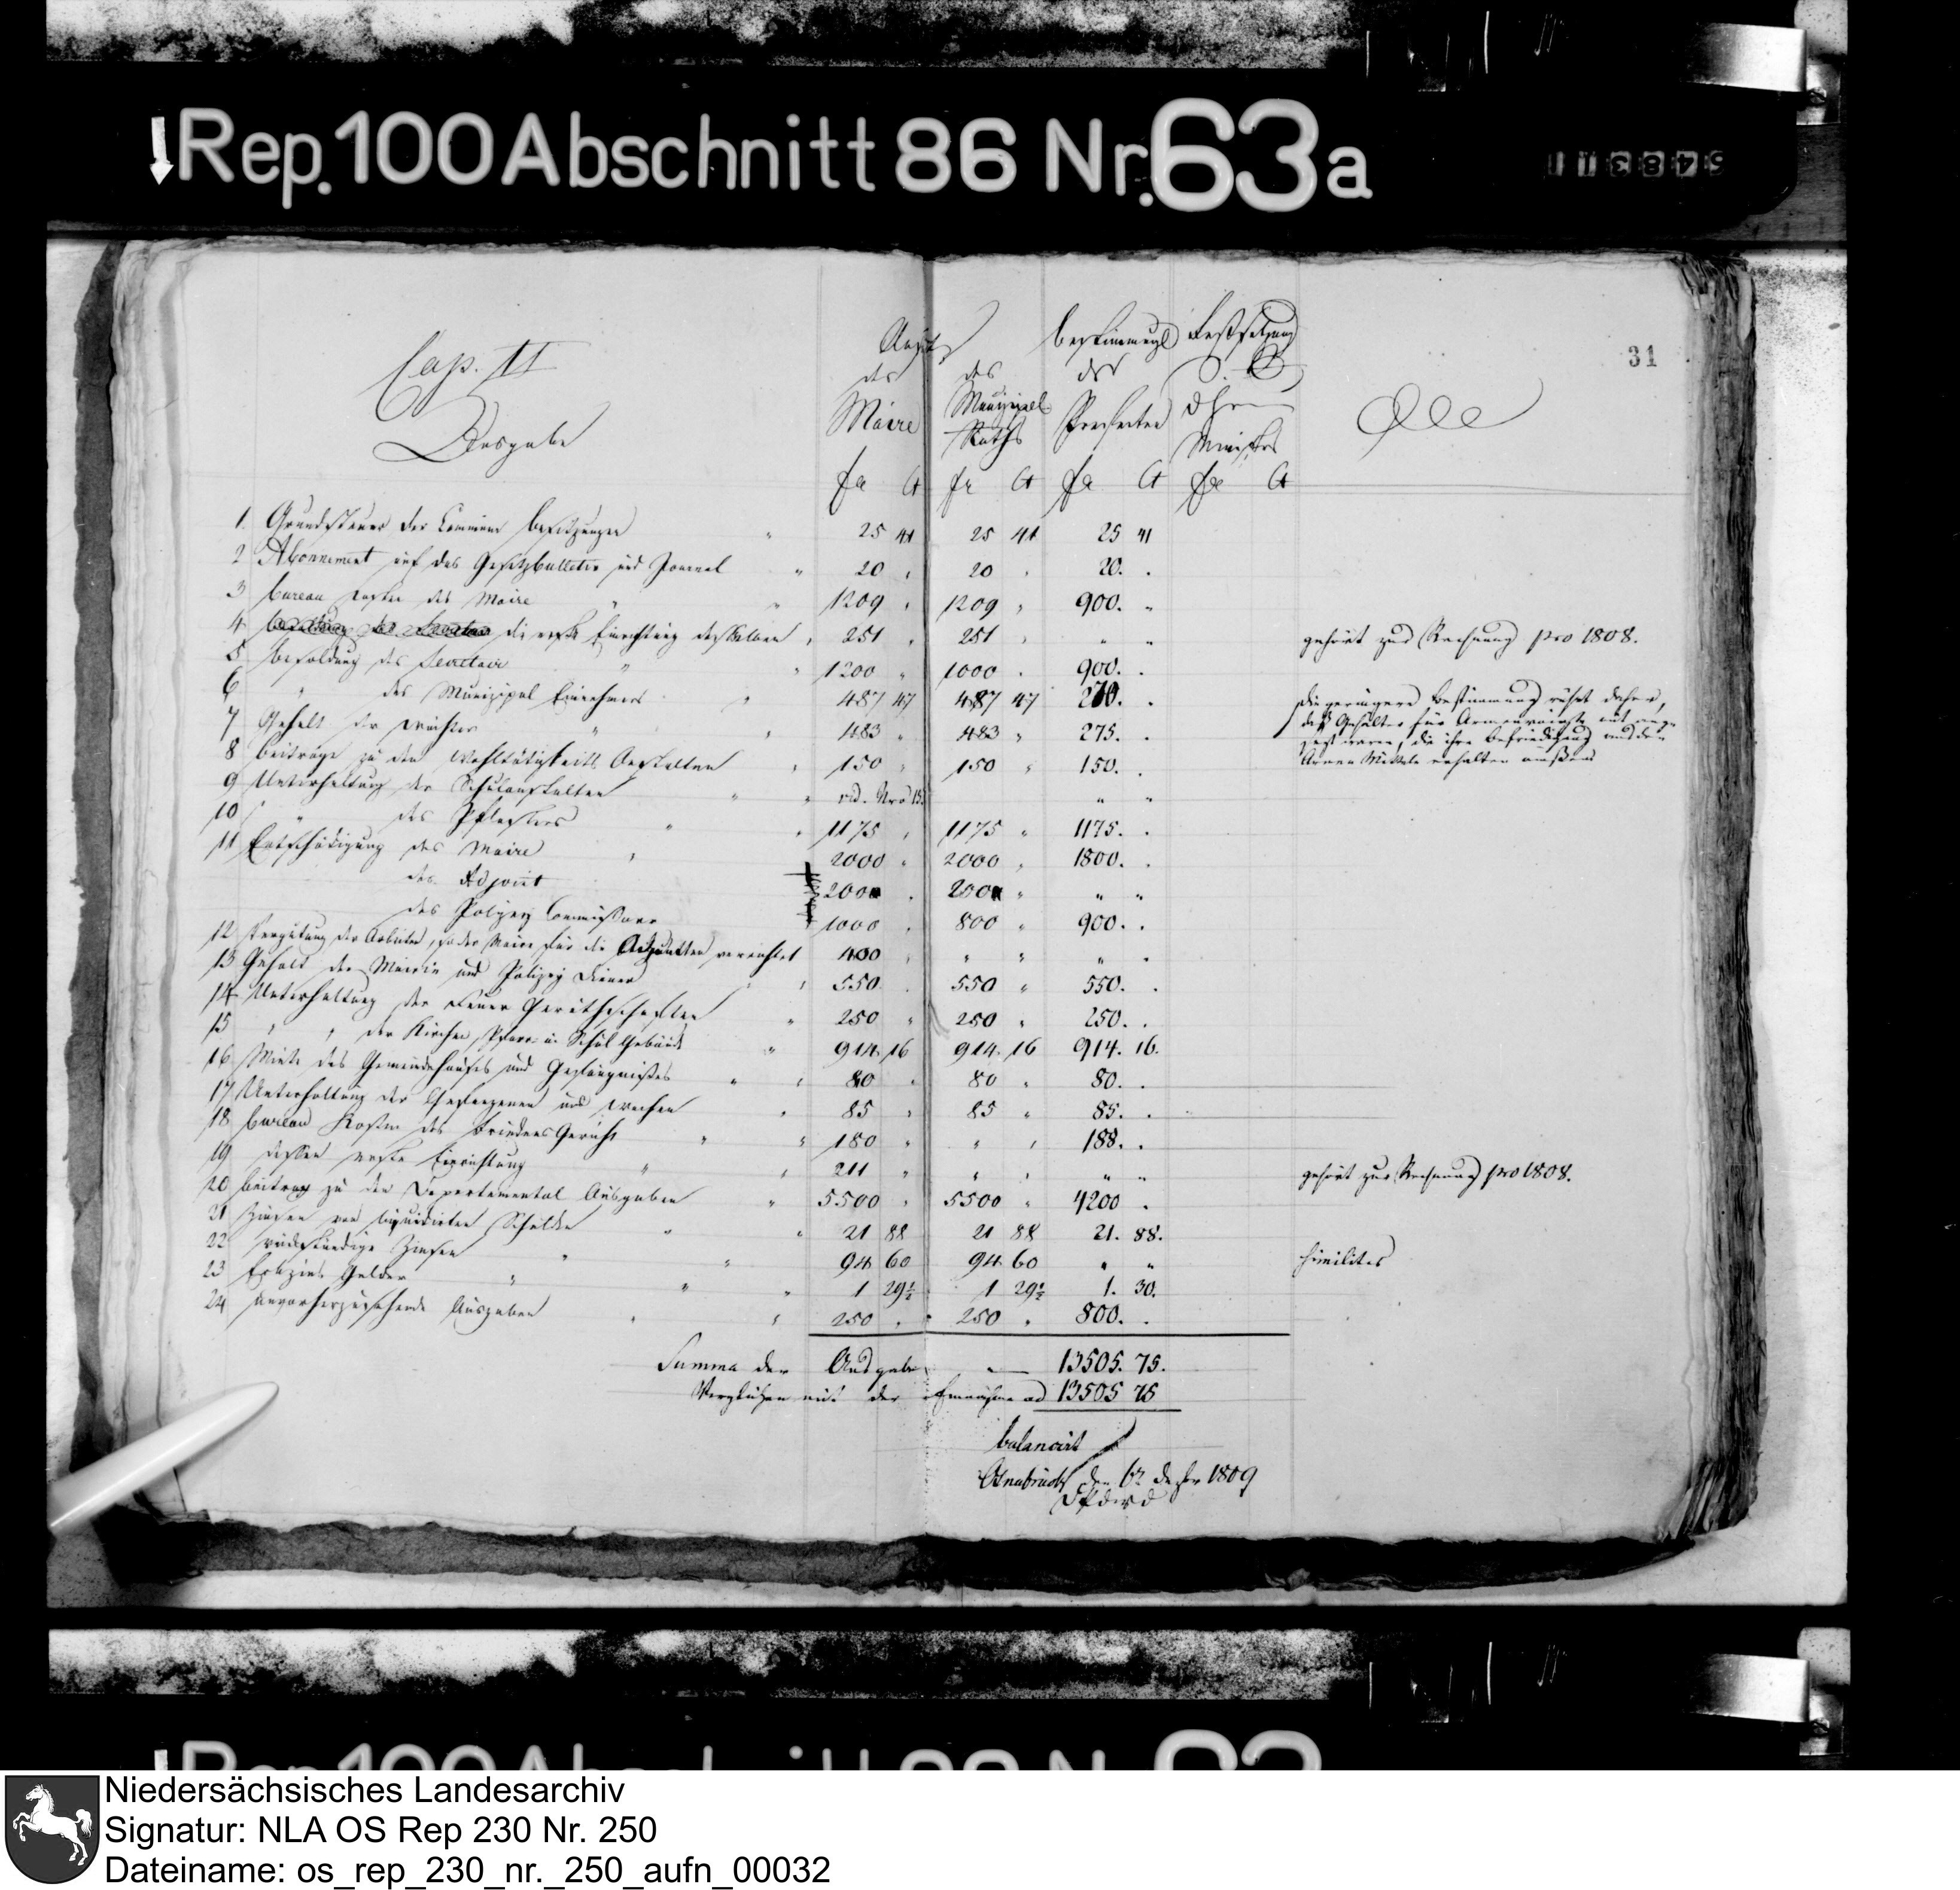 Rep. 100 Abschnitt 86 Nr. 63a
31
Cap. II
Ausgabe
Ansatz
des Maire
des Municipal Raths
Bestimmung des Praefecten
Festsetzung
Ministers
fr Ct fr Ct fr Ct fr Ct
1 Grundsteuer der Commune Besitzungen " 25 41 25 41 25 41
2 Abonnement auf das Gesetzbulletin und Journal " 20 . 20 . 20. .
3 Bureau Kosten des Maire " " 1209 . 1209 " 900. "
4 die erste Einrichtung desselben " 251 . 251 " " "
gehört zur Rechnung pro 1808.
5 Besoldung des Secretair " " 1200 " 1000 . 900. .
6 " des Munizipal Einnehmers " 487 47 487 47 270. .
die geringere Bestimmung rührt daher,
daß Gehälter für Armenvögte mit ange-
setzt waren, die ihre Befriedigung aus den
Armen Mitteln erhalten müßen
7 Gehalt der Wächter " " 483 " 483 " 275. .
8 Beiträge zu den Wohltätigkeits Anstalten " 150 " 150 " 150. .
9 Unterhaltung der Schulanstalten " " vid. Nro 15 " "
10 " des Pflasters " " 1175 . 1175 " 1175. .
11 Entschädigung des Maire " 2000 . 2000 " 1800. .
des Adjoint 200 . 200 " " "
des Polizey Commissairs 1000 . 800 " 900. .
12 Vergütung der Arbeiten, so der Maire für die Adjuncten verrichtet 400 " " " " "
13 Gehalt der Mairie und Polizey Diener " 550 . 550 " 550. .
14 Unterhaltung der Feuer Geräthschaften " 250 " 250 " 250. .
15 " " der Kirchen, Pfarr- u. Schul Gebäude " 914. 16 914. 16 914. 16.
16 Miete des Gemeindehauses und Gefängnißes " " 80 . 80 " 80. .
17 Unterhaltung der Gefangenen und Wachen " 85 " 85 " 85. .
18 Bureau Kosten des Friedens Gerichts " " 180 " " " 188. .
19 dessen erste Einrichtung " " 211 " " . " "
gehört zur Rechnung pro 1808.
20 Beitrag zu den Departemental Ausgaben " 5500 . 5500 " 4200 .
21 Zinsen von liquidirten Schulden " " 21 88 21 88 21. 88.
22 rückständige Zinsen " " 94 60 94 60 " "
similiter
23 Gelder " " " 1 29½ 1 29½ 1. 30.
24 unvorherzusehende Ausgaben " " 250 . 250 " 800. .
Summa der Ausgabe — 13505. 75.
Verglichen mit der Einnahme ad 13505 75
balancirt
Osnabrück den 6n 1809
Niedersächsisches Landesarchiv
Signatur: NLA OS Rep 230 Nr. 250
Dateiname: os_rep_230_nr._250_aufn_00032